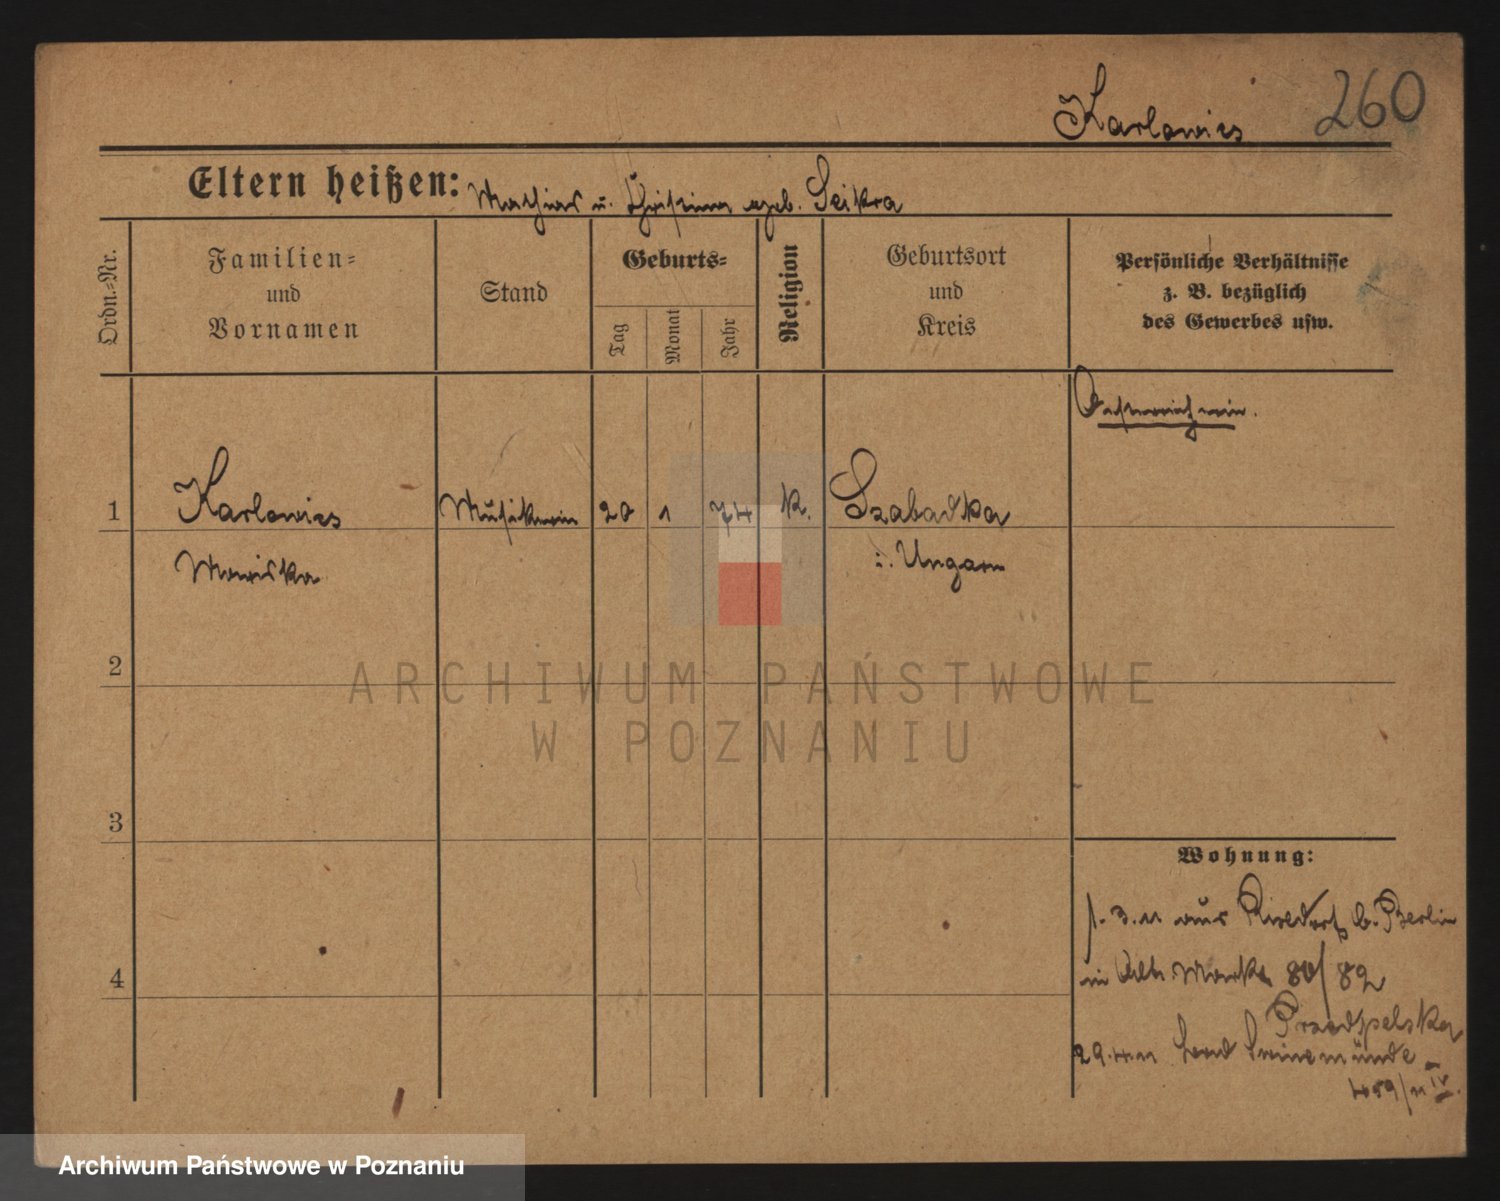 Karlowics 260
Eltern heißen: Mathias u. Christina geb. Seikra
Ordn.-Nr.
Familien-
und
Vornamen
Stand
Geburts-
Tag
Monat
Jahr
Religion
Geburtsort
und
Kreis
Persönliche Verhältnisse
z. B. bezüglich
des Gewerbes usw.
Oesterreicherin.
1 Karlowics Musikerin 20 1 74 k. Szabadka
Mariska i. Ungarn
2
3
4
Wohnung:
1. 3. 11 aus Rixdorf b. Berlin
in Alt. Markt 80/82
29. 4. 11 Swinemünde
459/11 IV.
ARCHIWUM PAŃSTWOWE
W POZNANIU
Archiwum Państwowe w Poznaniu